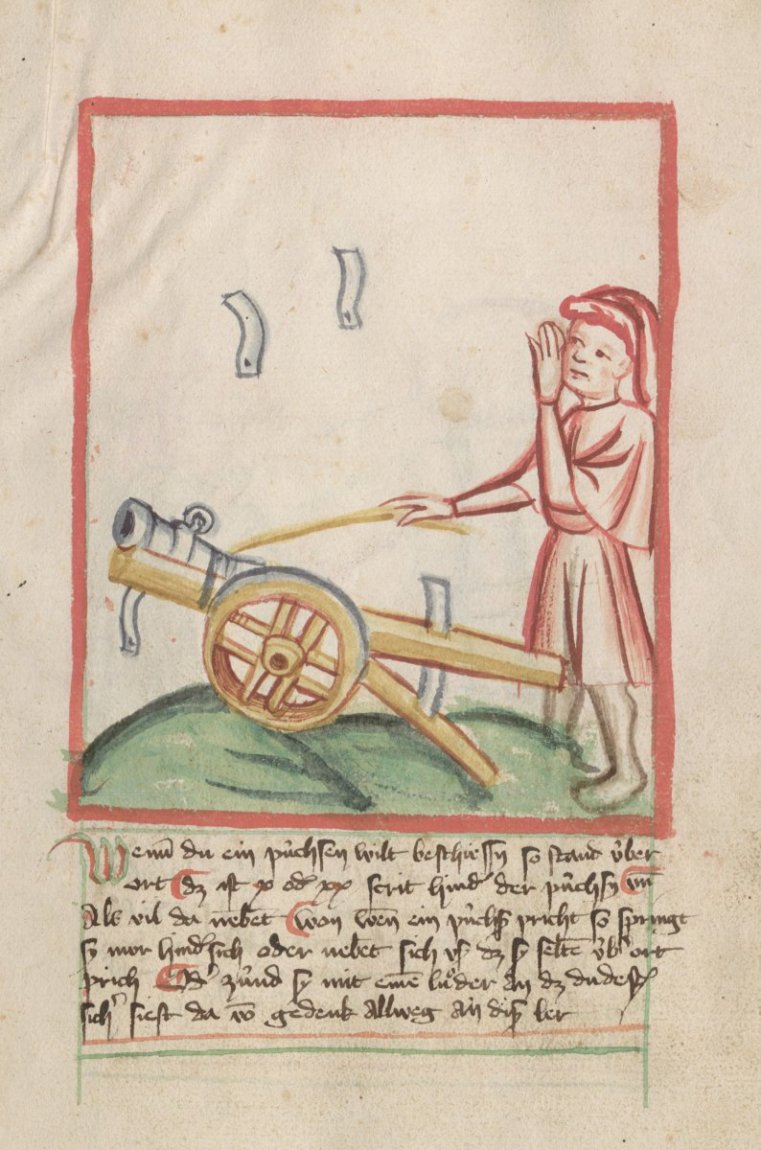 Wenn du ein püchsen wilt beschiessn so stand über
ort dz ist x od xx scrit hind der püchsn vn
Als vil da nebet won wen ein püchs pricht so springt
sy mer hind sich oder nebet sich vs dz sy selten üb ort
prich Od zünd sy mit eine luder an dz du dest
sich siest da vo gedenk allweg an dis ler